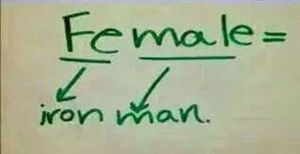 Female=
iron man.